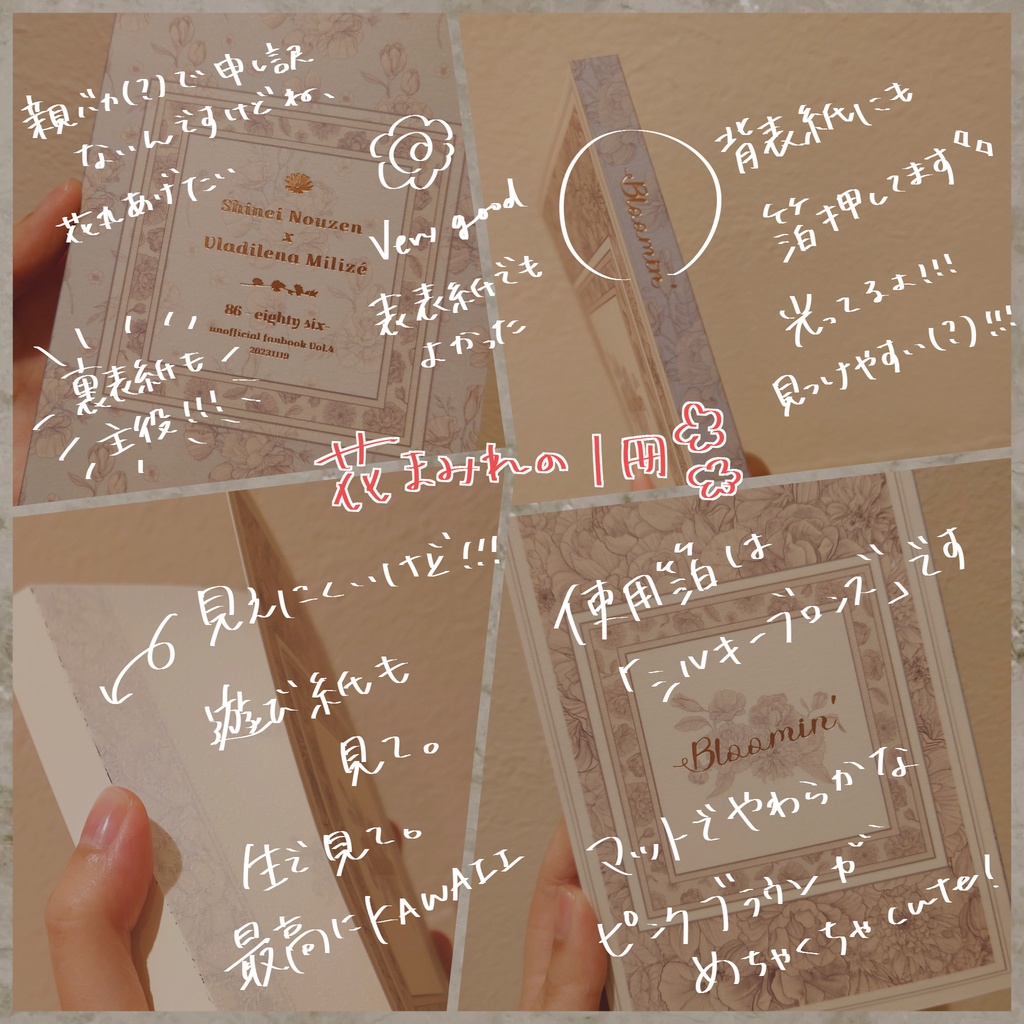 親バカ(?)で申し訳
ないんですけどね、
花丸あげたい
Shinei Nouzen
x
Vladilena Milizé
86 - eighty six-
unofficial fanbook Vol.4
20231119
Very good
表表紙でも
よかった
裏表紙も
主役!!!
Bloomin'
背表紙にも
箔押ししてます
光ってるよ!!!
見つけやすい(?)!!!
花まみれの1冊
見えにくいけど!!!
遊び紙も
見て。
生で見て。
最高にKAWAII
使用箔は
「シルキーブロンズ」です
Bloomin'
マットでやわらかな
ピンクブラウンが
めちゃくちゃcute!